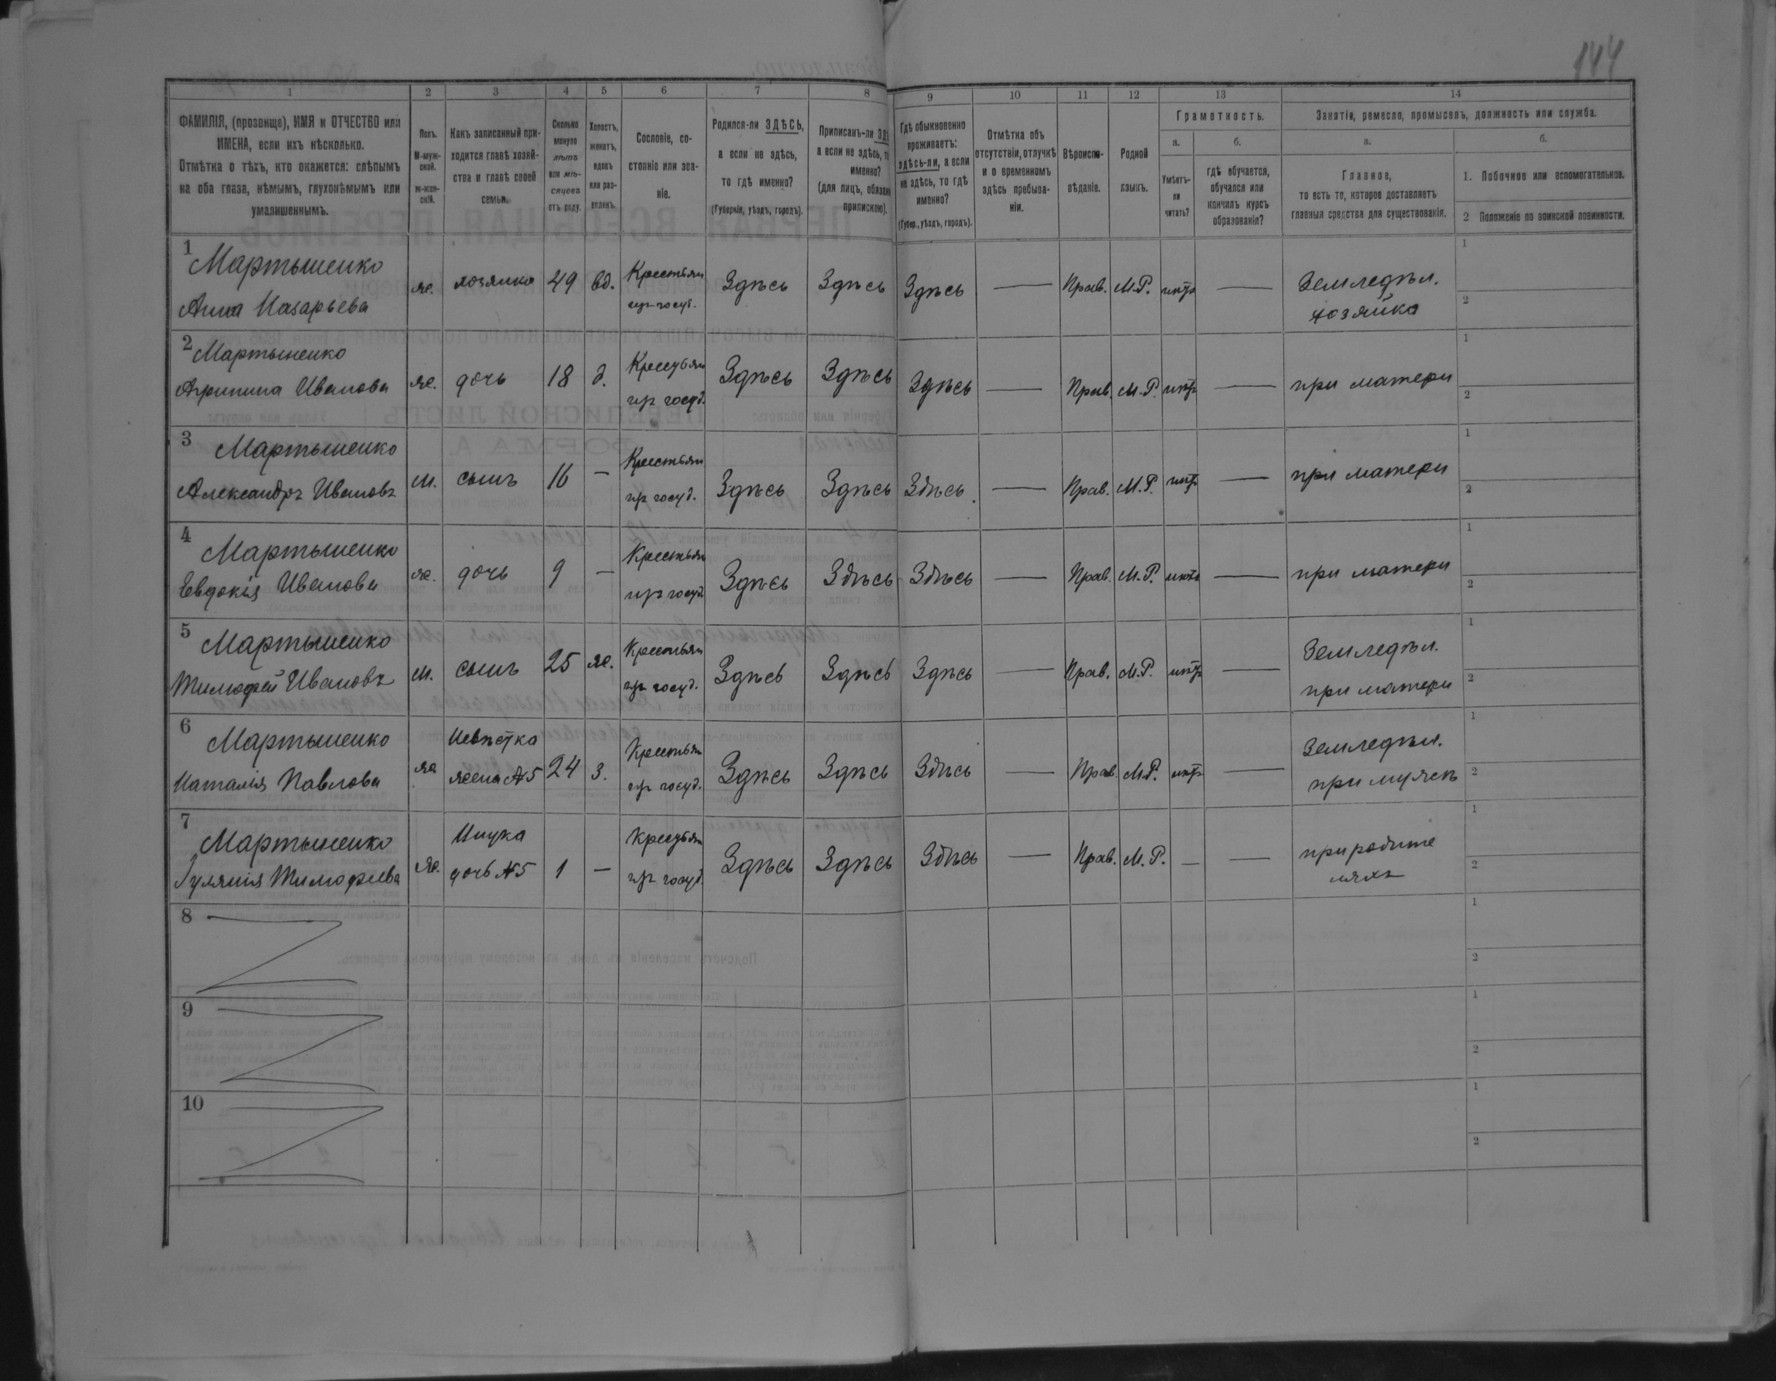 144
1 2 3 4 5 6 7 8 9 10 11 12 13 14
ФАМИЛІЯ, (прозвище), ИМЯ и ОТЧЕСТВО или
ИМЕНА, если ихъ нѣсколько.
Отмѣтка о тѣхъ, кто окажется: слѣпымъ
на оба глаза, нѣмымъ, глухонѣмымъ или
умалишеннымъ.
Полъ.
М-муж-
ской.
ж-жен-
скій.
Какъ записанный при-
ходится главѣ хозяй-
ства и главѣ своей
семьи.
Сколько
минуло
лѣтъ
или мѣ-
сяцевъ
отъ роду.
Холостъ,
женатъ,
вдовъ
или раз-
веденъ.
Сословіе, со-
стояніе или зва-
ніе.
Родился-ли ЗДѢСЬ,
а если не здѣсь,
то гдѣ именно?
(Губернія, уѣздъ, городъ).
Приписанъ-ли
а если не здѣсь,
именно?
(для лицъ,
припискою).
Гдѣ обыкновенно
проживаетъ:
здѣсь-ли, а если
не здѣсь, то гдѣ
именно?
(Губер., уѣздъ, городъ).
Отмѣтка объ
отсутствіи, отлучкѣ
и о временномъ
здѣсь пребыва-
ніи.
Вѣроиспо-
вѣданіе.
Родной
языкъ.
Грамотность.
а.
Умѣетъ-
ли
читать?
б.
гдѣ обучается,
обучался или
кончилъ курсъ
образованія?
Занятіе, ремесло, промыселъ, должность или служба.
а.
Главное,
то есть то, которое доставляетъ
главныя средства для существованія.
б.
1. Побочное или вспомогательное.
2 Положеніе по воинской повинности.
1 Мартыненко
Анна Назарьева
ж. хозяйка 49 вд. Крестьян
изъ госуд. Здѣсь Здѣсь Здѣсь — Прав. М.Р. нѣтъ — Земледѣл.
хозяйка
1
2
2 Мартыненко
Агрипина Иванова
ж. дочь 18 д. Крестьян
изъ госуд. Здѣсь Здѣсь Здѣсь — Прав. М.Р. нѣтъ — при матери
1
2
3 Мартыненко
Александръ Ивановъ
м. сынъ 16 — Крестьян
изъ госуд. Здѣсь Здѣсь Здѣсь — Прав. М.Р. нѣтъ — при матери
1
2
4 Мартыненко
Евдокія Иванова
ж. дочь 9 — Крестьян
изъ госуд. Здѣсь Здѣсь Здѣсь — Прав. М.Р. нѣтъ — при матери
1
2
5 Мартыненко
Тимофей Ивановъ
м. сынъ 25 ж. Крестьян
изъ госуд. Здѣсь Здѣсь Здѣсь — Прав. М.Р. нѣтъ — Земледѣл.
при матери
1
2
6 Мартыненко
Наталія Павлова
ж Невѣстка
жена №5 24 з. Крестьян
изъ госуд. Здѣсь Здѣсь Здѣсь — Прав. М.Р. нѣтъ — Земледѣл.
при мужѣ
1
2
7 Мартыненко
Іулянія Тимофеева
ж. Внука
дочь №5 1 — Крестьян
изъ госуд. Здѣсь Здѣсь Здѣсь — Прав. М.Р. — — при родите
ляхъ
1
2
8
1
2
9
1
2
10
1
2